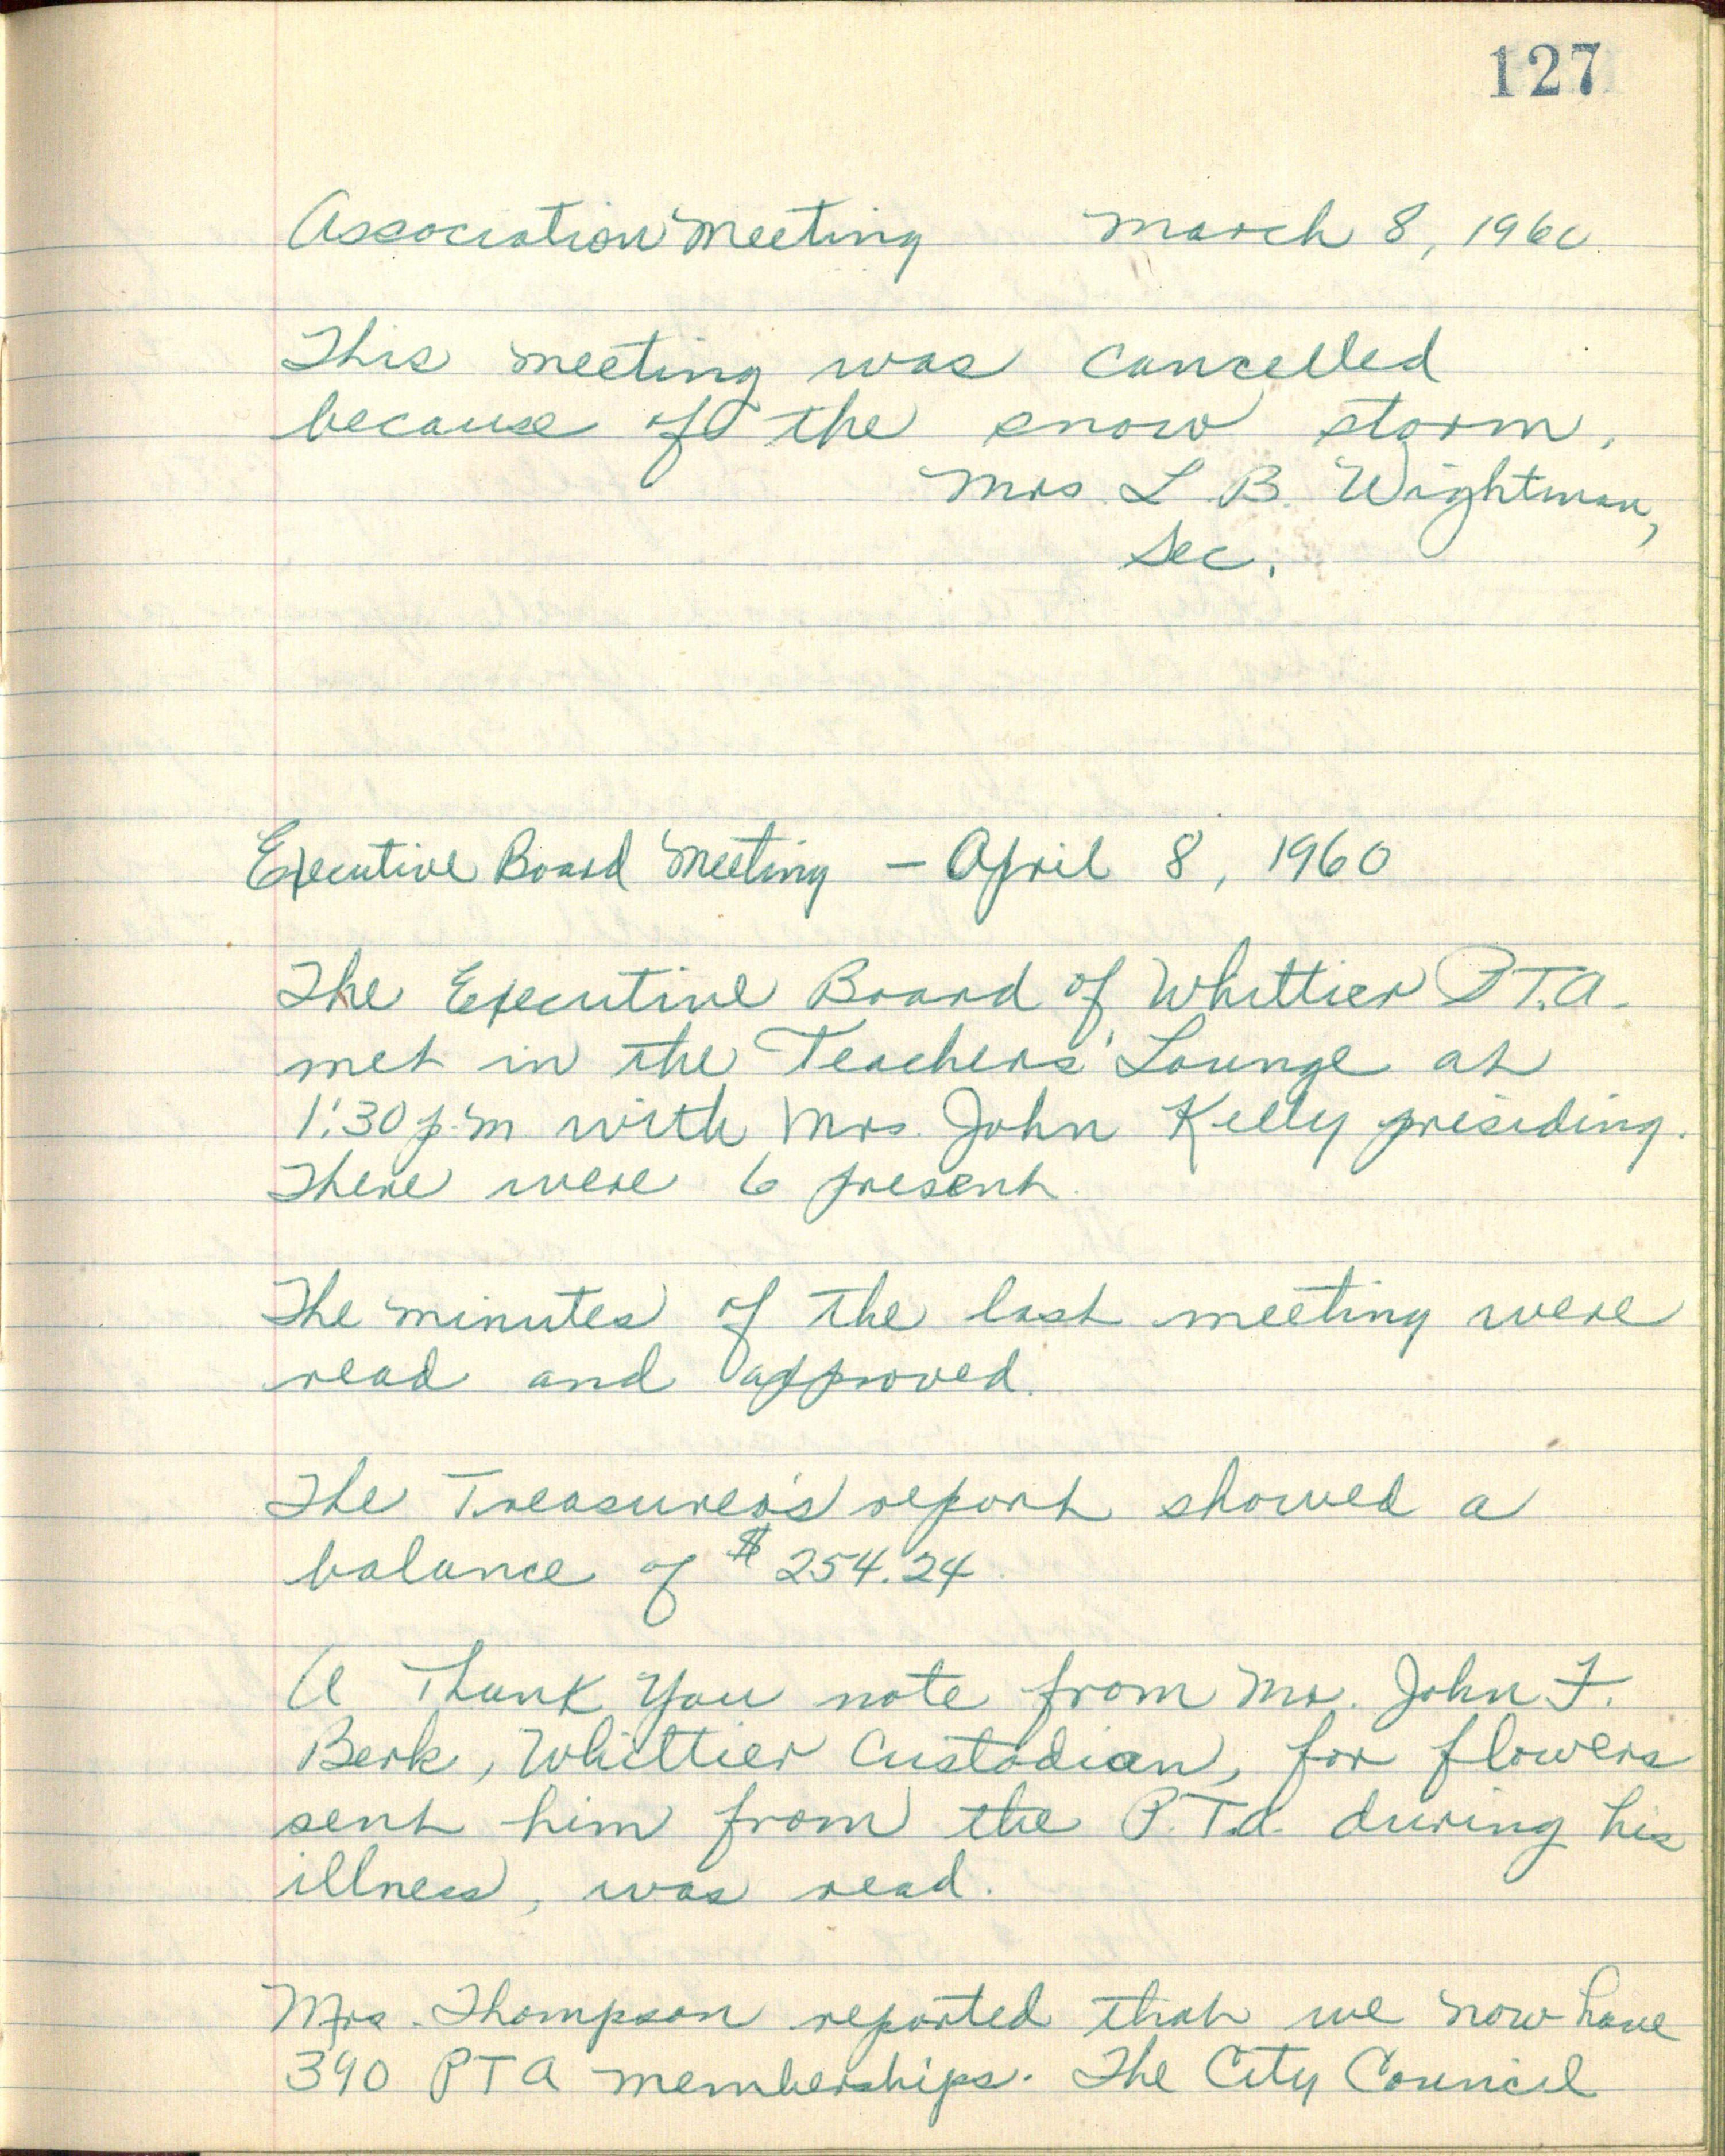 127
Association Meeting March 8, 1960
This meeting was cancelled
because of the snow storm.
Mrs L B. Wightman,
Sec.
Executive Board Meeting – April 8, 1960
The Executive Board of Whittier P.T.A.
met in the Teachers' Lounge at
1:30 p.m with Mrs. John Kelly presiding.
There were 6 present.
The minutes of the last meeting were
read and approved.
The Treasurer's report showed a
balance of $254.24.
A Thank You note from Mr. John F.
Berk, Whittier Custodian, for flowers
sent him from the P.T.A. during his
illness, was read.
Mrs. Thompson reported that we now have
390 PTA memberships. The City Council